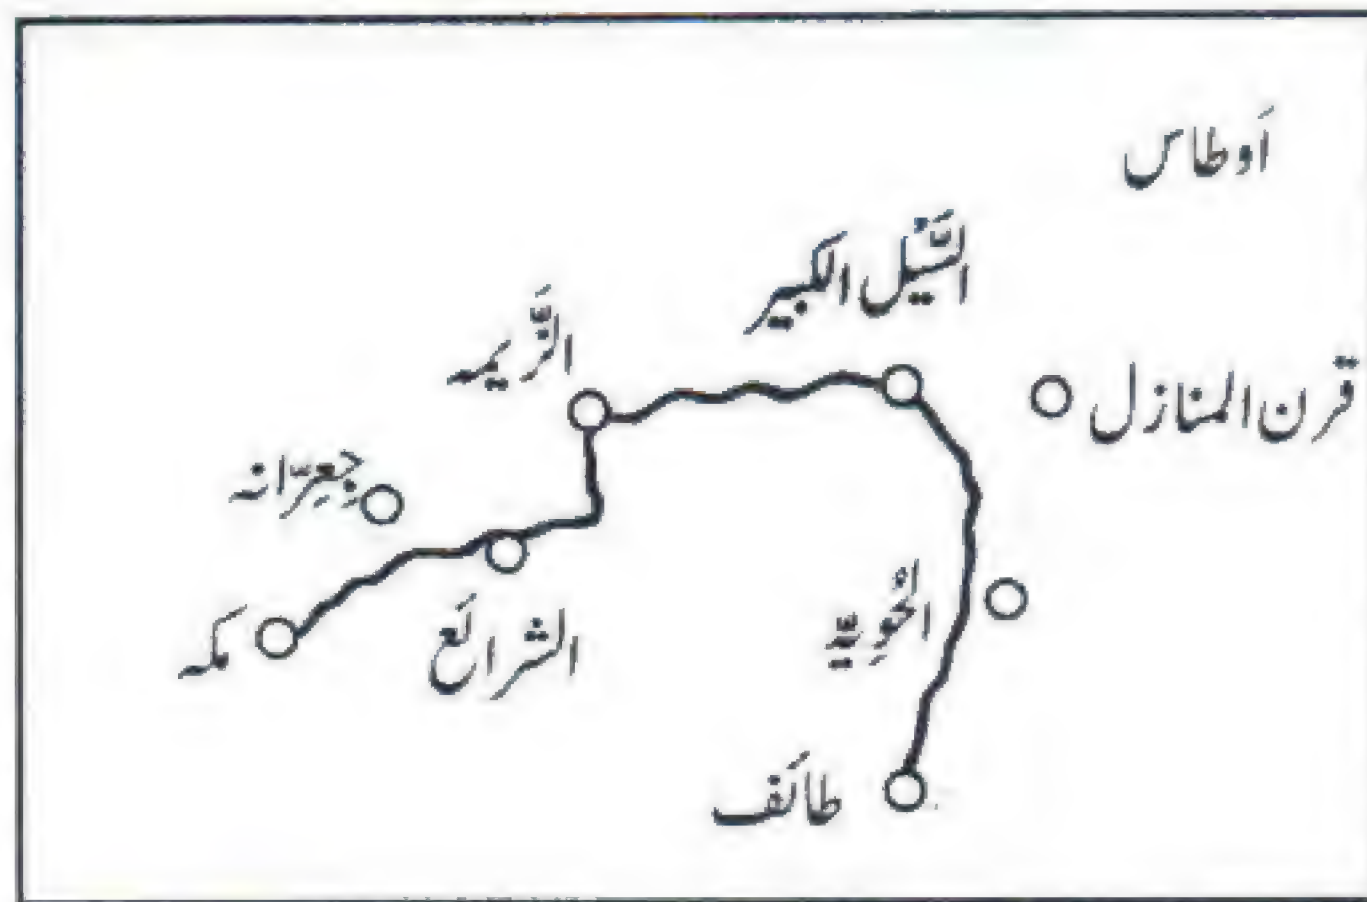 اَوطاس
السَّیْل الکبیر
الزَّیمہ
قرن المنازل
جِعِرّانہ
الحُوِیّہ
الشرائع
مکہ
طائف